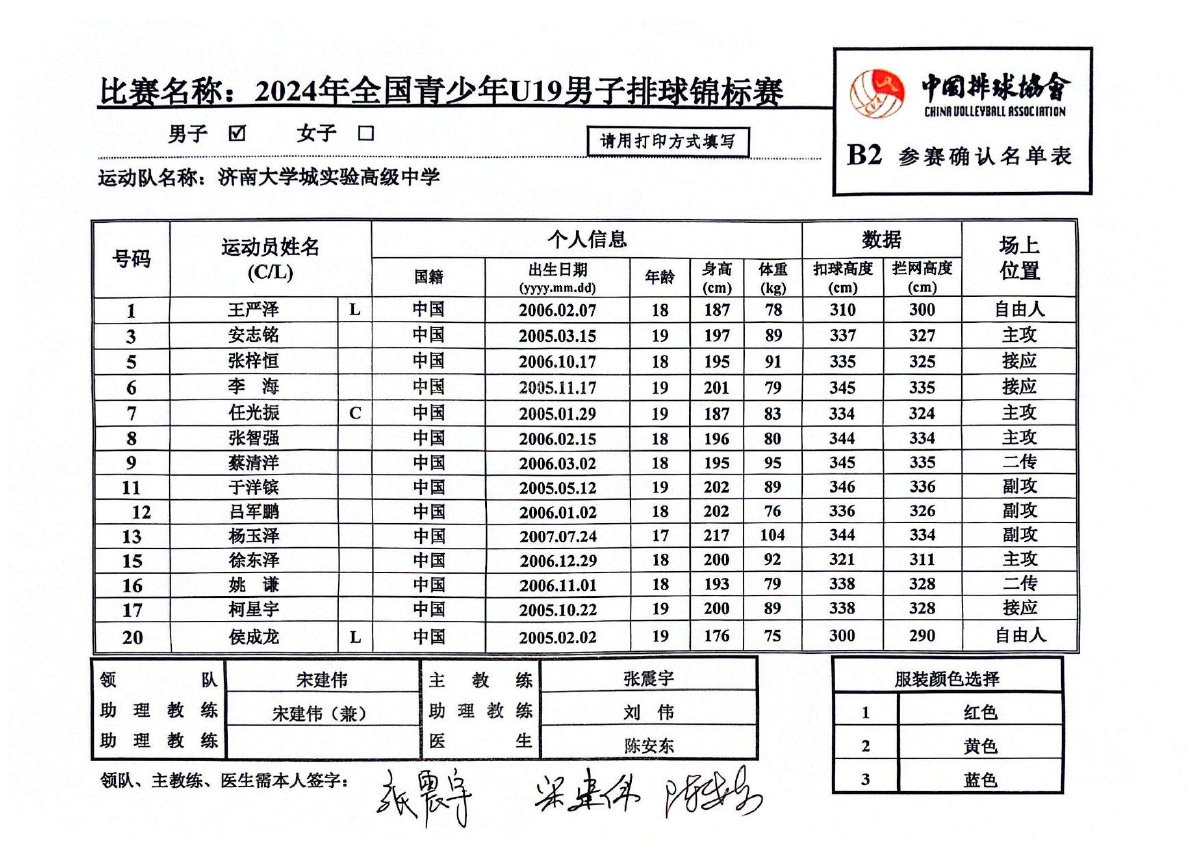 比赛名称：2024年全国青少年U19男子排球锦标赛
中国排球协會
CHINA VOLLEYBALL ASSOCIATION
B2 参赛确认名单表
男子 ☑ 女子 □
请用打印方式填写
运动队名称：济南大学城实验高级中学
号码 运动员姓名 (C/L) 个人信息 数据 场上位置
国籍 出生日期 (yyyy.mm.dd) 年龄 身高 (cm) 体重 (kg) 扣球高度 (cm) 拦网高度 (cm)
1 王严泽 L 中国 2006.02.07 18 187 78 310 300 自由人
3 安志铭 中国 2005.03.15 19 197 89 337 327 主攻
5 张梓恒 中国 2006.10.17 18 195 91 335 325 接应
6 李 海 中国 2005.11.17 19 201 79 345 335 接应
7 任光振 C 中国 2005.01.29 19 187 83 334 324 主攻
8 张智强 中国 2006.02.15 18 196 80 344 334 主攻
9 蔡清洋 中国 2006.03.02 18 195 95 345 335 二传
11 于洋镔 中国 2005.05.12 19 202 89 346 336 副攻
12 吕军鹏 中国 2006.01.02 18 202 76 336 326 副攻
13 杨玉泽 中国 2007.07.24 17 217 104 344 334 副攻
15 徐东泽 中国 2006.12.29 18 200 92 321 311 主攻
16 姚 谦 中国 2006.11.01 18 193 79 338 328 二传
17 柯星宇 中国 2005.10.22 19 200 89 338 328 接应
20 侯成龙 L 中国 2005.02.02 19 176 75 300 290 自由人
领 队 宋建伟 主 教 练 张震宇
助 理 教 练 宋建伟（兼） 助 理 教 练 刘 伟
助 理 教 练 医 生 陈安东
服装颜色选择
1 红色
2 黄色
3 蓝色
领队、主教练、医生需本人签字：
张震宇 宋建伟 陈安东